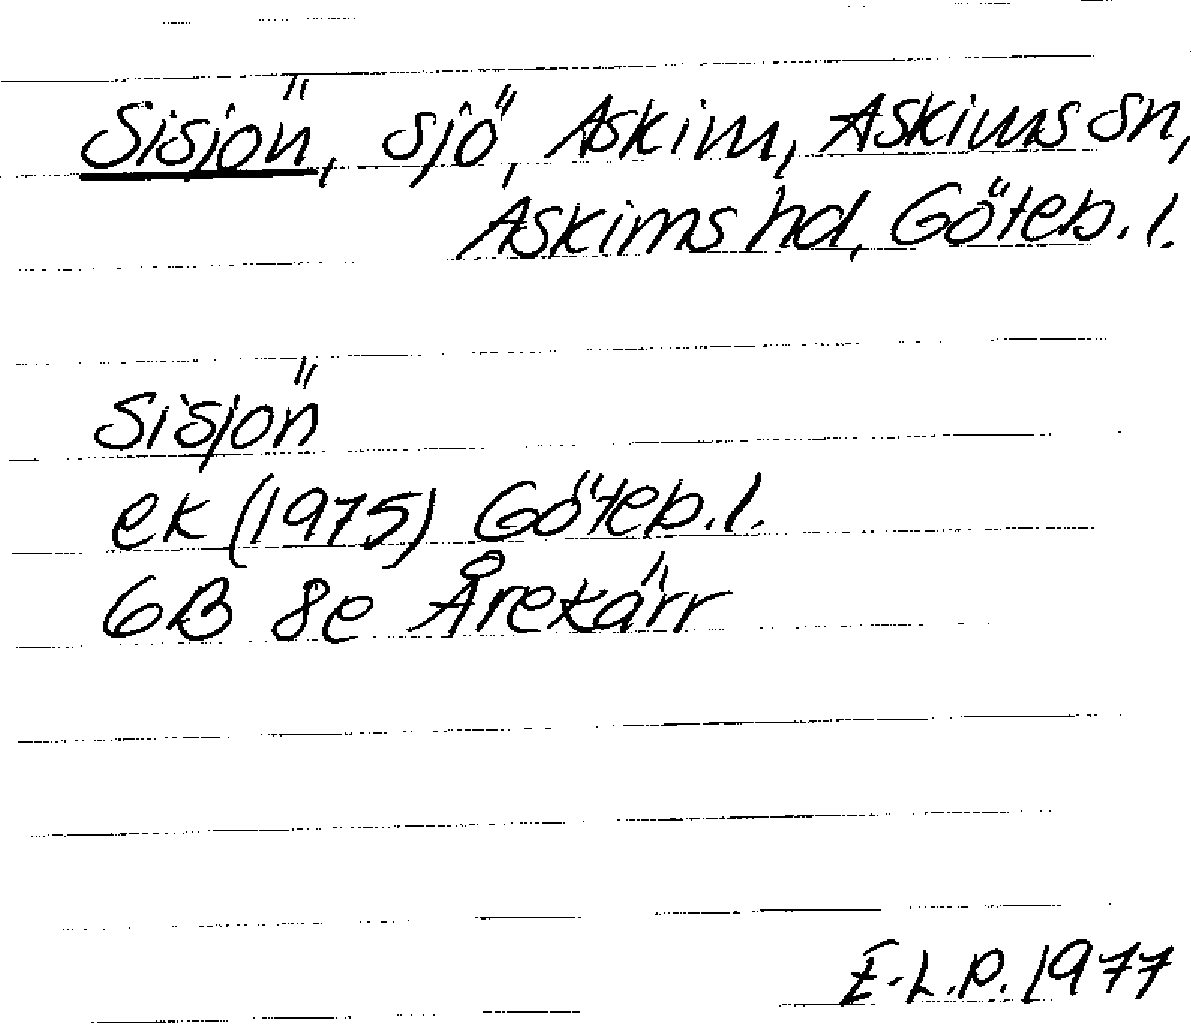 Sisjön, sjö, Askim, Askims sn,
Askims hd, Göteb. l.
Sisjön
ek (1975) Göteb. l.
6B 8e Årekärr
E.L.P. 1977